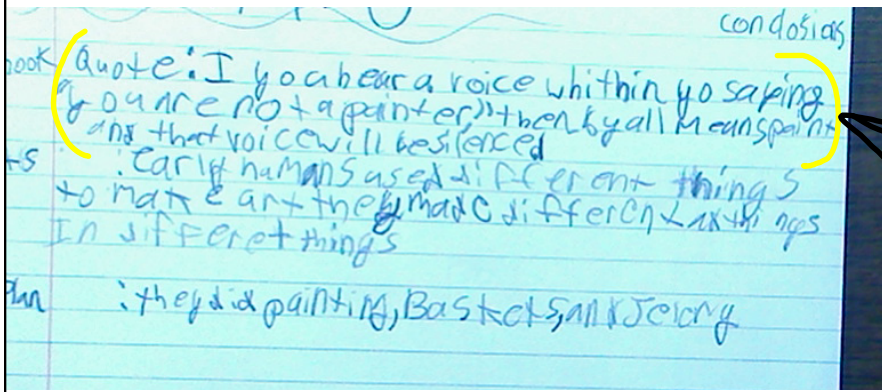 condosias
hook Quote: I you hear a voice whithin yo sayeing
"you are not a painter," then by all means paint
and that voice will be silenced
ts : Early humans used different things
to make art they made different art things
In differet things
Plan : they did painting, Baskets, and Jelery